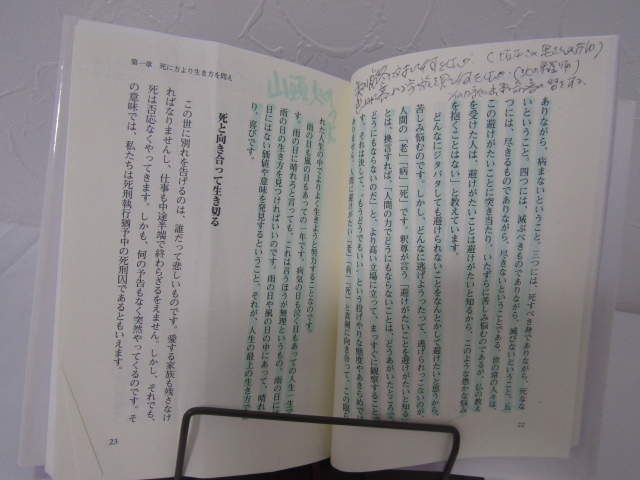 ありながら、病まないということ、三つには、死すべき身でありながら、死なな
いということ、四つには、滅ぶべきものでありながら、滅びないということ、五
つには、尽きるものでありながら、尽きないということである。世の常の人々は、
この避けがたいことに突き当たり、いたずらに苦しみ悩むのであるが、仏の教え
を受けた人は、避けがたいことは避けがたいと知るから、このような愚かな悩み
を抱くことはない」と教えています。
どんなにジタバタしても避けられないことをなんとかして避けたいと思うから、
苦しみ悩むのです。しかし、どんなに逃げようったって、逃げられっこないのが、
人間の「老」「病」「死」です。釈尊が言う「避けがたいことを避けがたいと知る」
とは、換言すれば、「人間の力でどうにもならないことは、どうあがいたところで
どうにもならないのだ」と、より高い立場に立って、まっすぐに観察すること
です。それは決して、「もうどうでもいい」という投げやりな態度やあきらめで
22
第一章　死に方より生き方を問え
れた人生の中でよりよく生きようと努力することなのです。
雨の日も風の日もあっての一年です。病気の日も泣く日もあっての人生一生で
す。雨の日に晴れろと言っても、これは言うほうが無理というもの。雨の日には
雨の日の生き方を見つければいいのです。雨の日や風の日の中にあって、晴れの
日にはない価値や意味を発見するということ、それが、人生の最上の生き方であ
り、喜びです。
死と向き合って生き切る
この世に別れを告げるのは、誰だって悲しいものです。愛する家族も残さなけ
ればなりませんし、仕事も中途半端で終わらざるをえません。しかし、それでも、
死は否応なくやってきます。しかも、何の予告もなく突然やってくるのです。そ
の意味では、私たちは死刑執行猶予中の死刑囚であるともいえます。
23